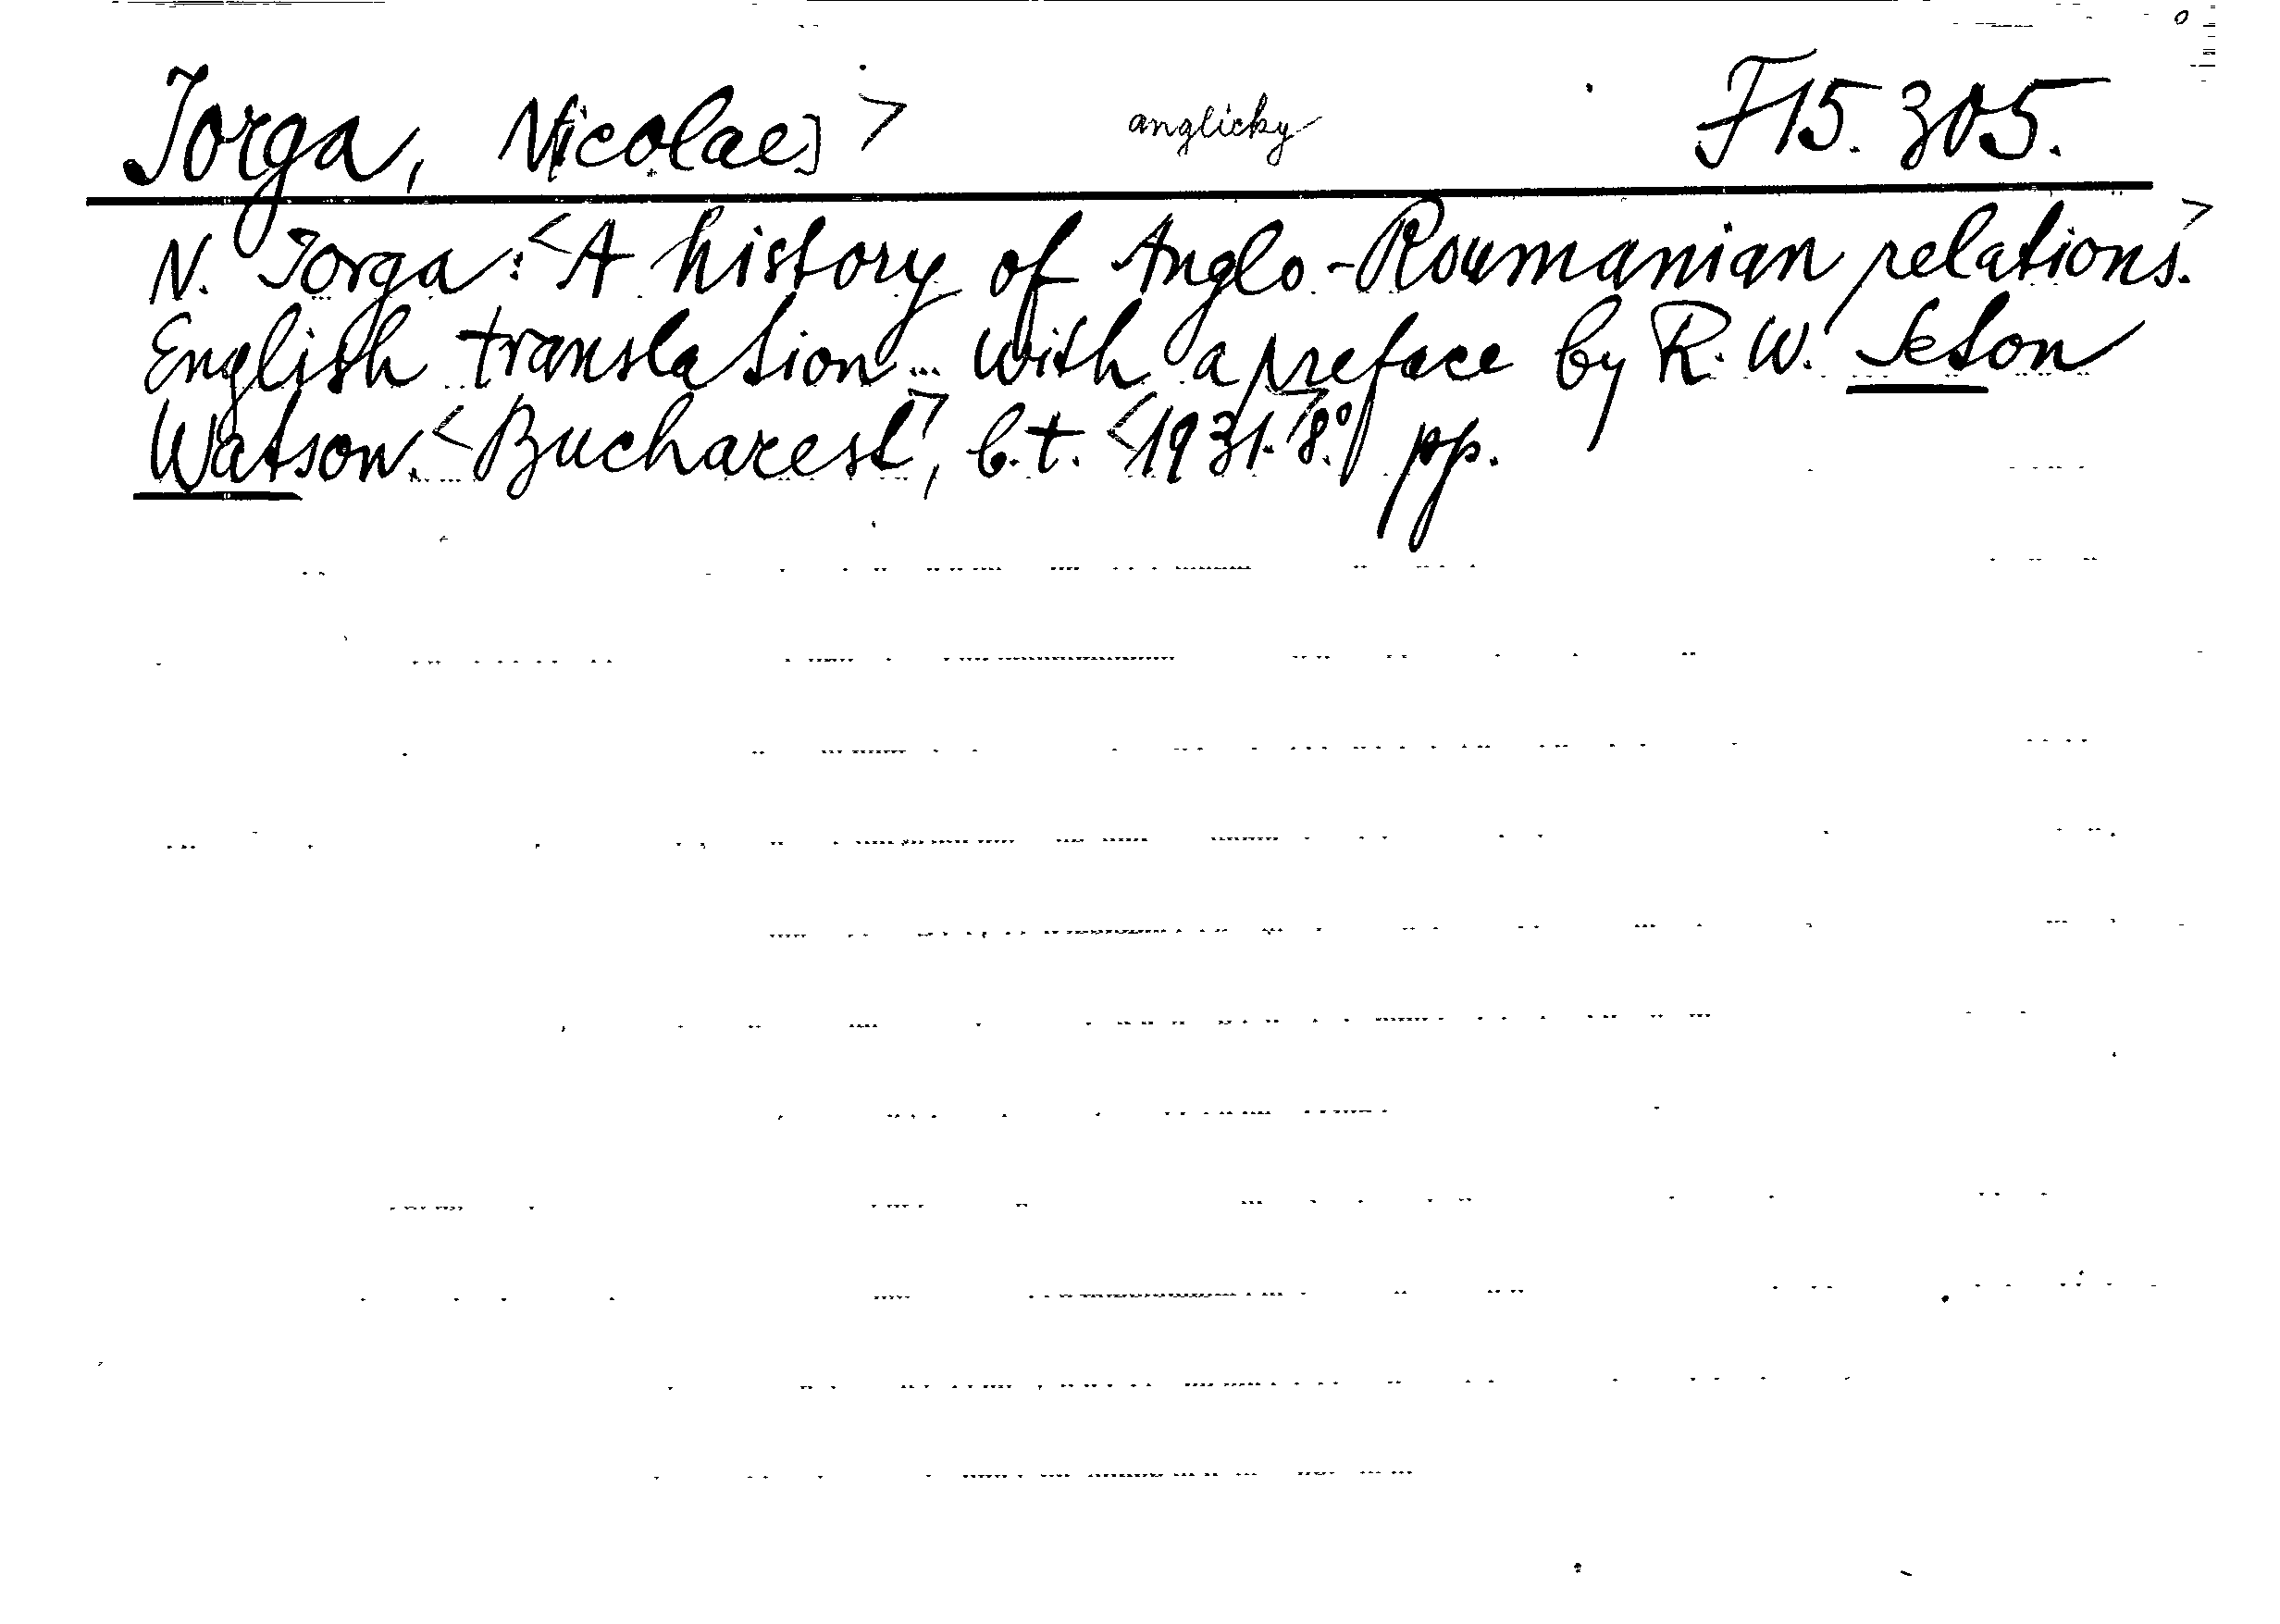 Jorga, N[icolae] > anglicky F 15.305.
N. Jorga: <A history of Anglo-Roumanian relations.>
English translation ... with a preface by R. W. Seton
Watson. <Bucharest>, b.t. <1931.> 8.° pp.